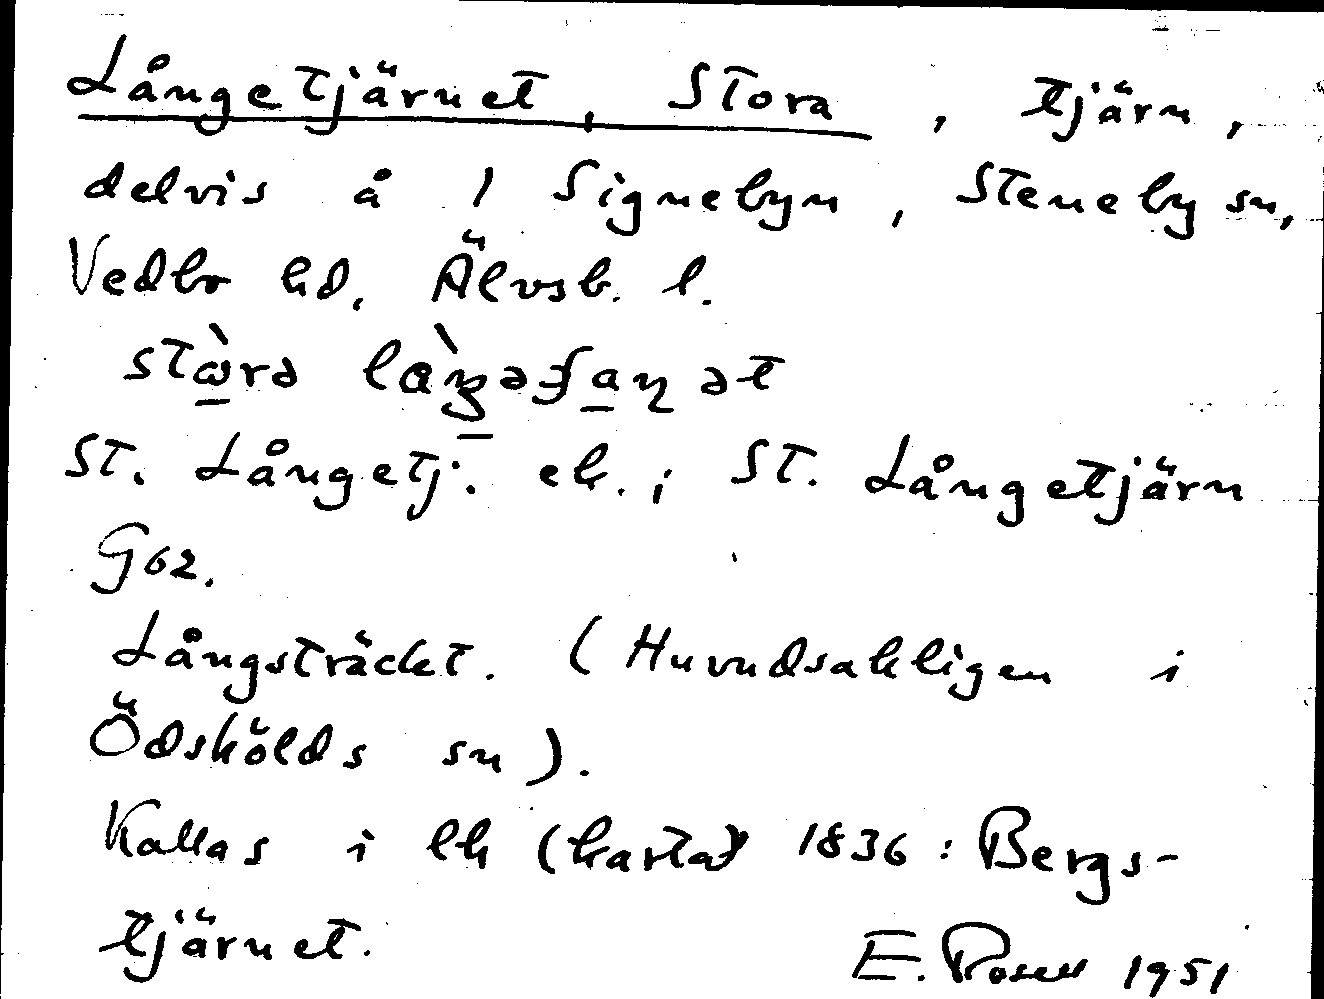 Långetjärnet, Stora, tjärn,
delvis å 1 Signebyn, Steneby sn,
Vedbo hd, Älvsb. l.
St. Långetj. ek.; St. Långetjärn
G62.
Långsträckt. (Huvudsakligen i
Ödskölds sn).
Kallas i lk (karta) 1836: Bergs-
tjärnet.
E. Rosell 1951